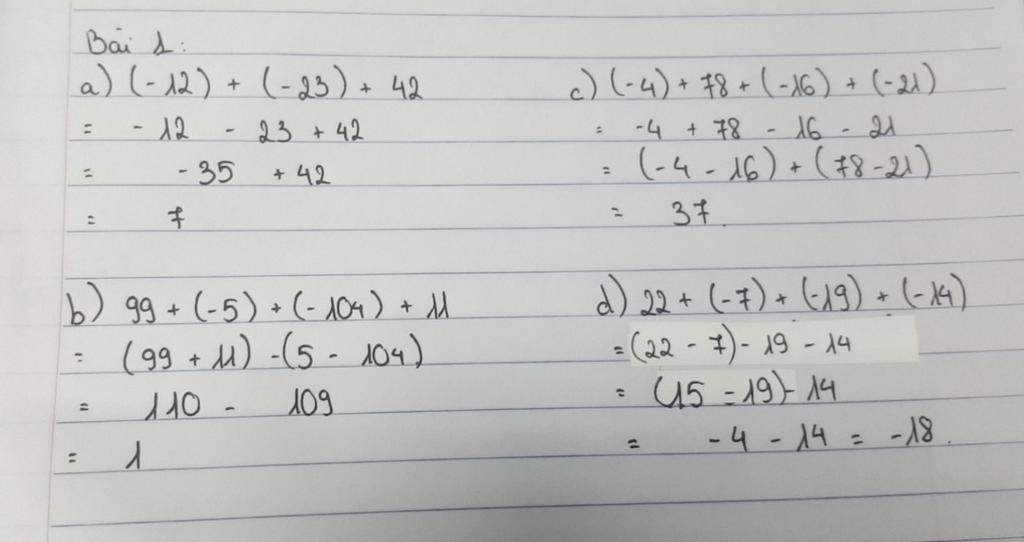 Bài 1:
a) (-12) + (-23) + 42
= -12 - 23 + 42
= -35 + 42
= 7
b) 99 + (-5) + (-104) + 11
= (99 + 11) - (5 - 104)
= 110 - 109
= 1
c) (-4) + 78 + (-16) + (-21)
= -4 + 78 - 16 - 21
= (-4 - 16) + (78 - 21)
= 37.
d) 22 + (-7) + (-19) + (-14)
= (22 - 7) - 19 - 14
= (15 - 19) - 14
= -4 - 14 = -18.